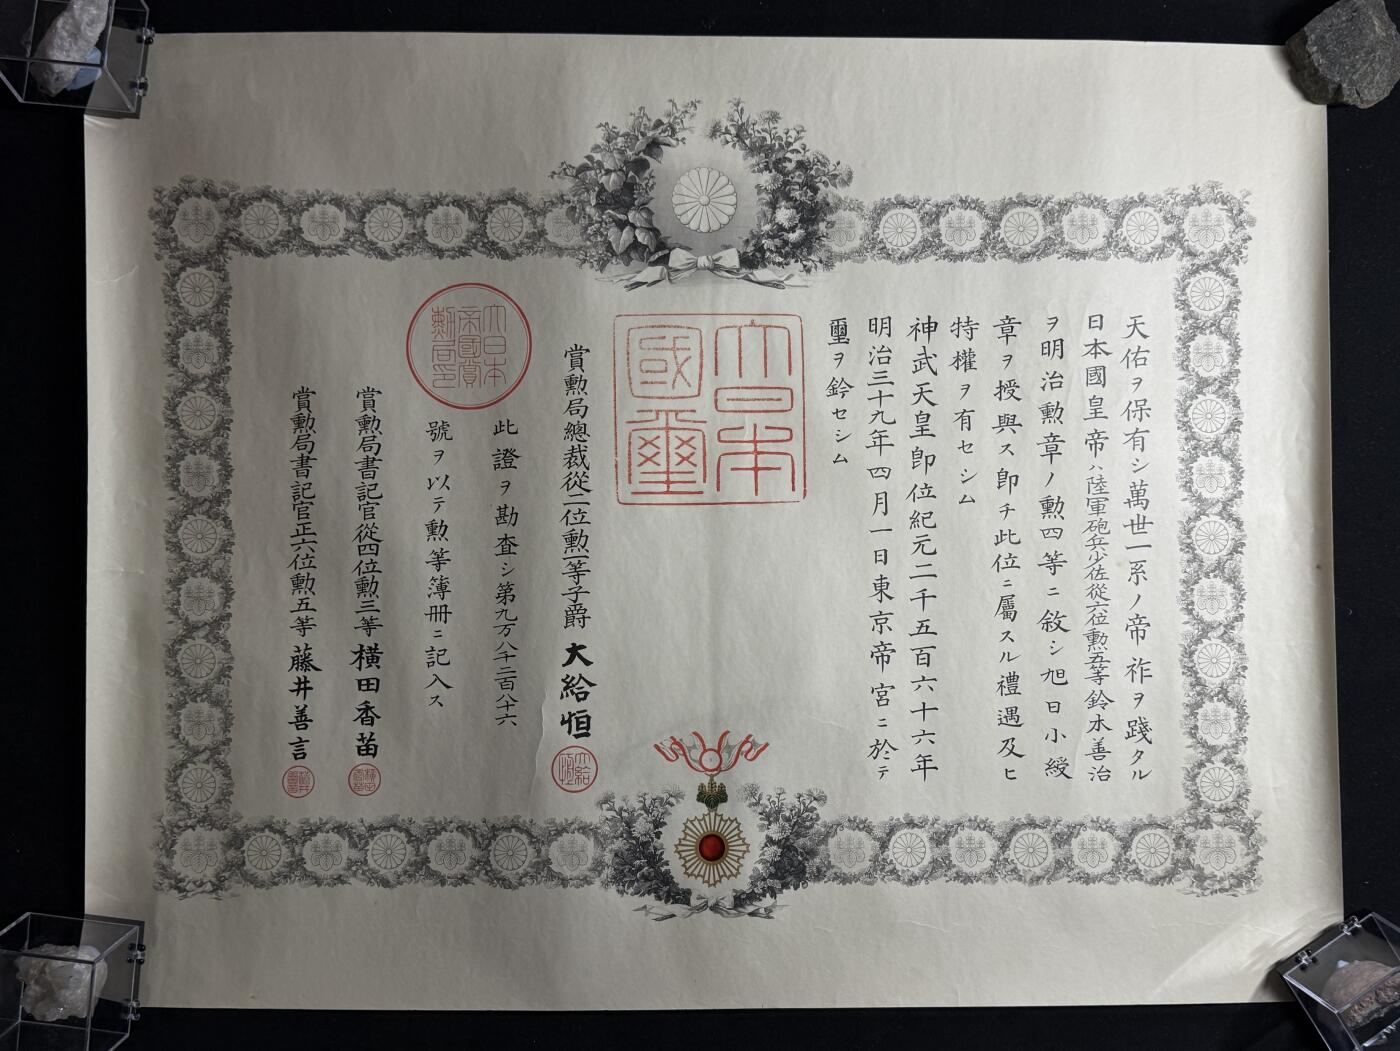 天佑ヲ保有シ萬世一系ノ帝祚ヲ踐タル
日本國皇帝ハ陸軍砲兵少佐從六位勲五等鈴木善治
ヲ明治勲章ノ勲四等ニ敘シ旭日小綬
章ヲ授與ス即チ此位ニ屬スル禮遇及ヒ
特權ヲ有セシム
神武天皇即位紀元二千五百六十六年
明治三十九年四月一日東京帝宮ニ於テ
璽ヲ鈐セシム
大日本
國璽
賞勲局總裁從二位勲一等子爵 大給恒
大日本
帝國賞
勲局印
此證ヲ勘査シ第九万八千二百八十六
號ヲ以テ勲等簿冊ニ記入ス
賞勲局書記官從四位勲三等 横田香苗
賞勲局書記官正六位勲五等 藤井善言